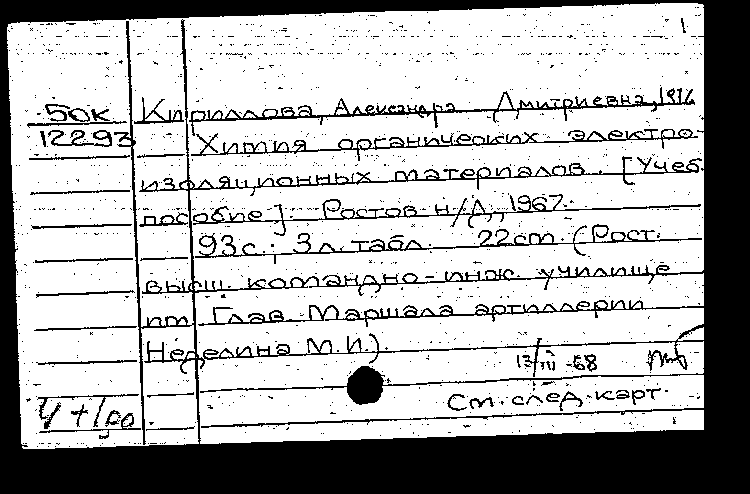 1
50К Кириллова, Александра Дмитриевна, 1916
12293 Химия органических электро-
изоляционных материалов. [Учеб.
пособие]. Ростов н/Д., 1967.
93с.; 3л. табл. 22cm. (Рост.
высш. командно-инж. училище
им. Глав. Маршала артиллерии
Неделина М.И.).
13/III-68
См. след. карт.